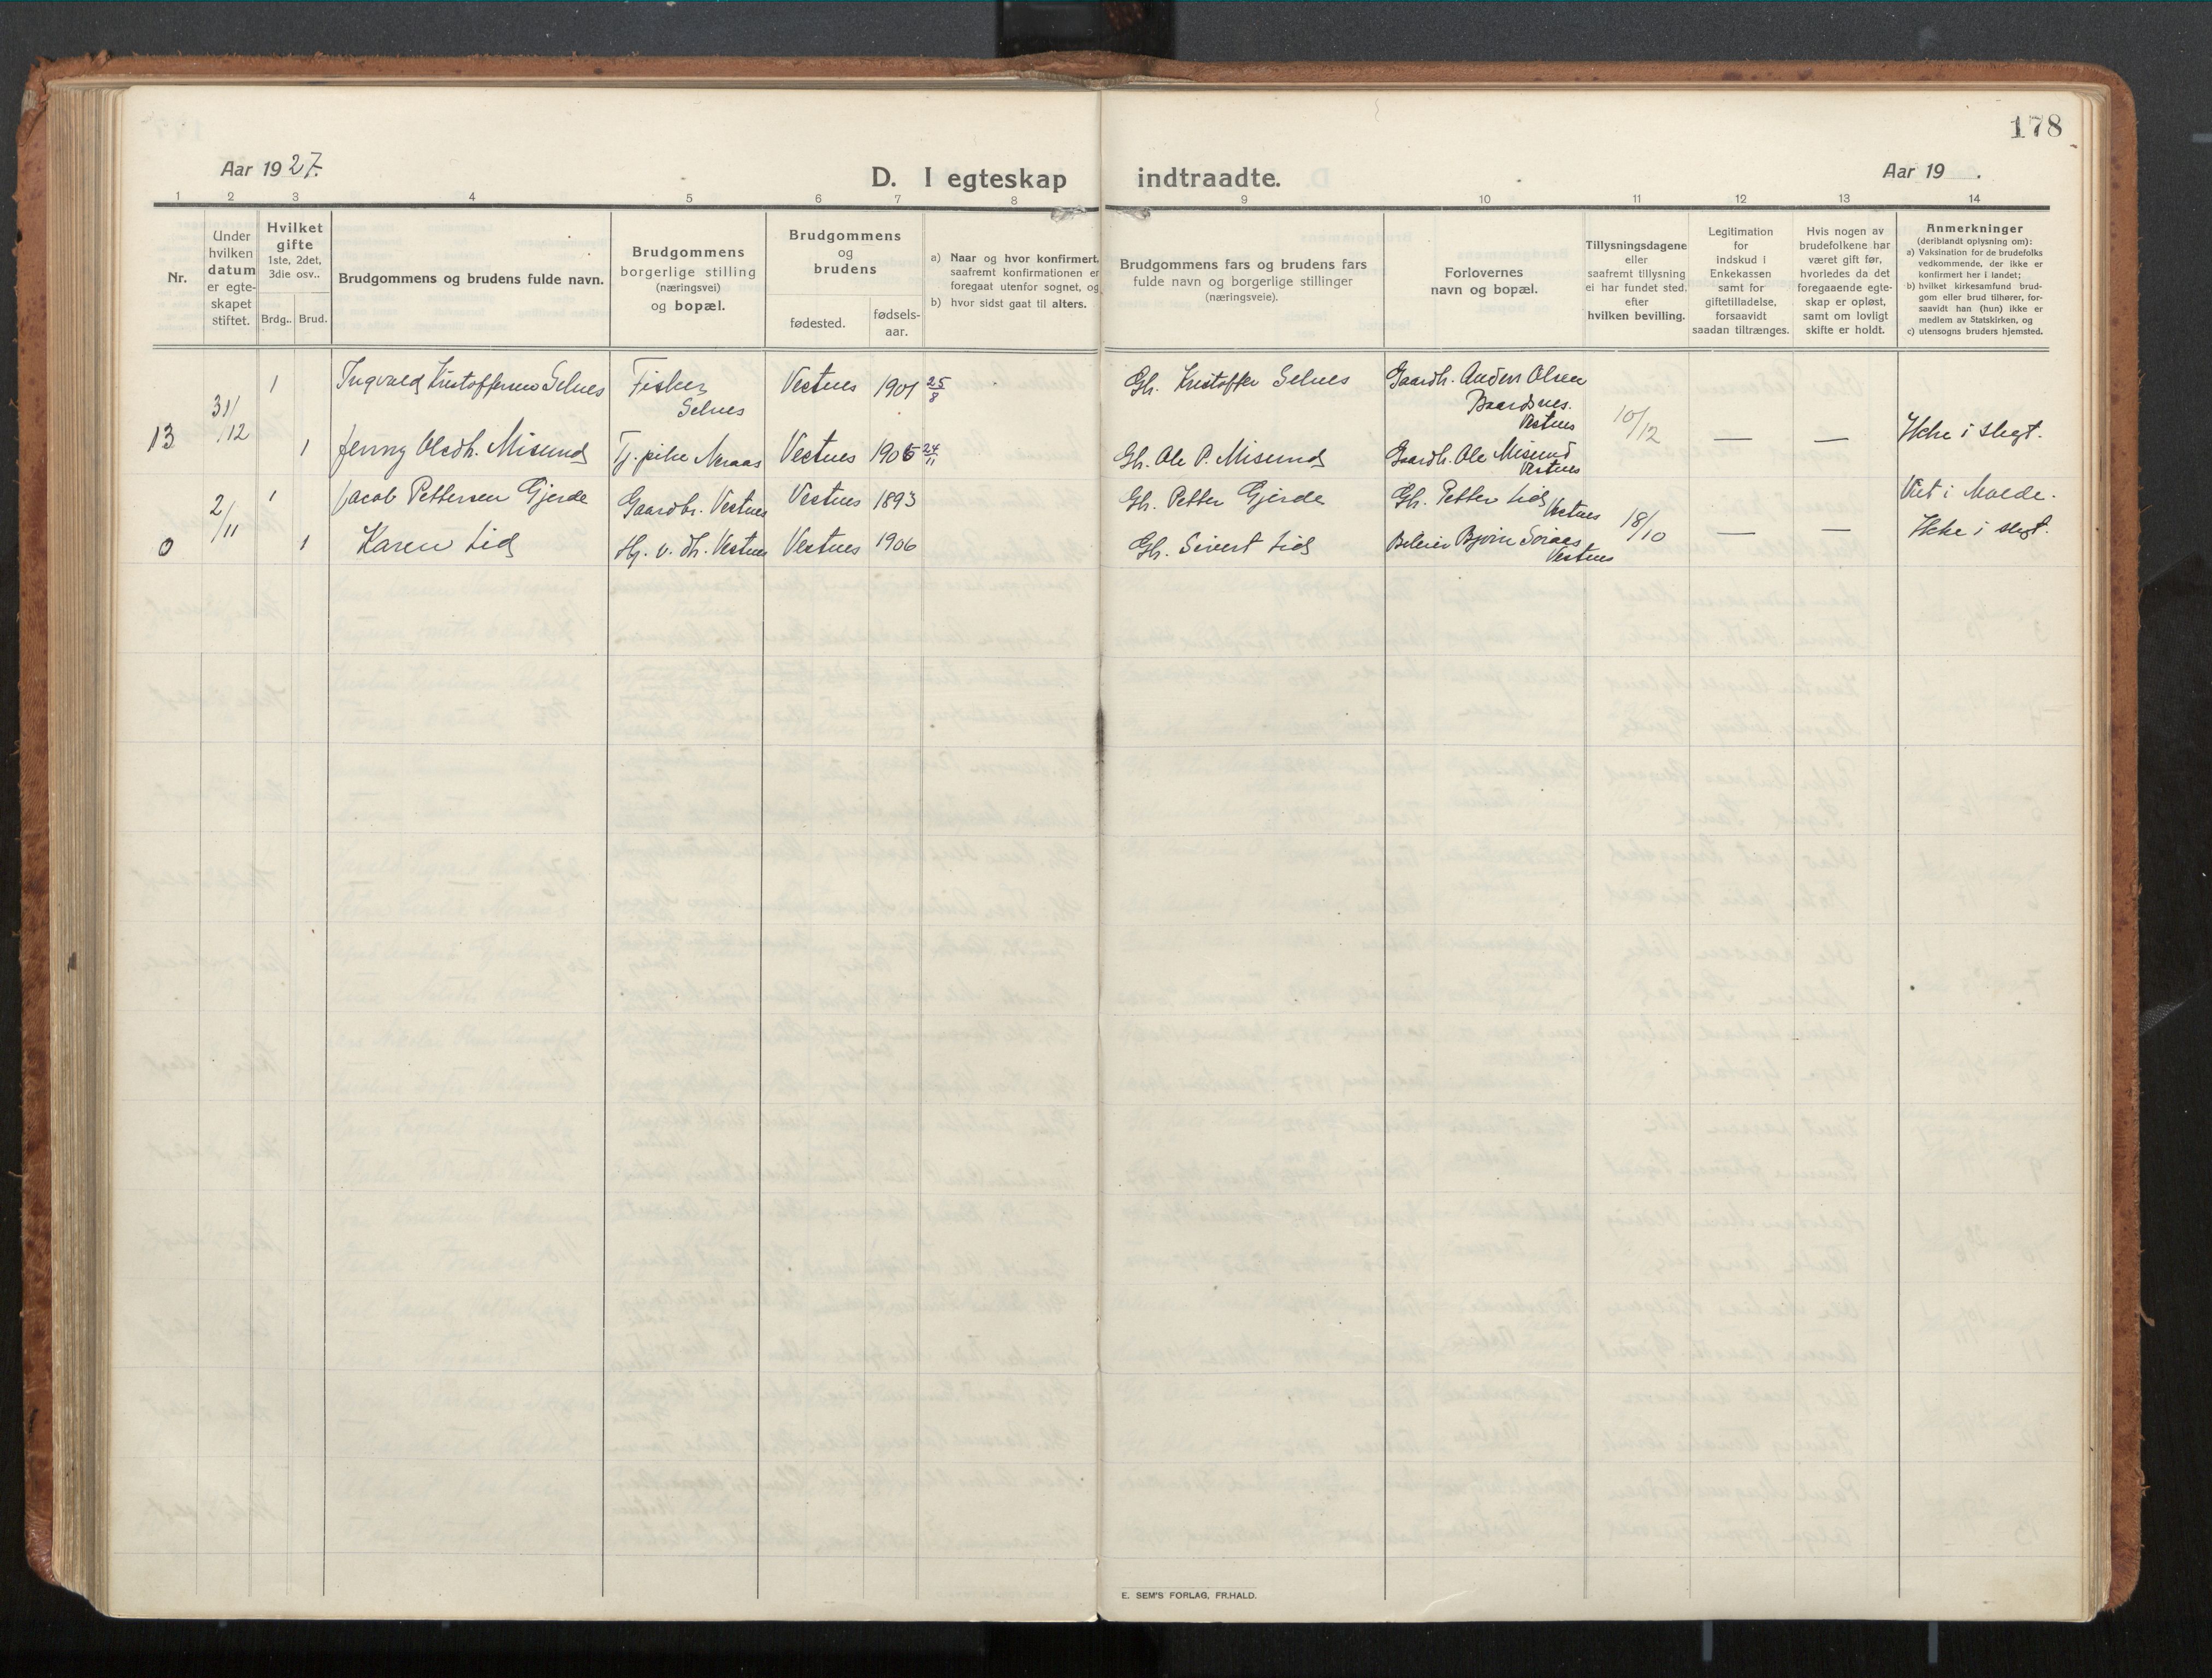 178
Aar 1927.
D. I egteskap indtraadte.
Aar 19 .
1 2 3 4 5 6 7 8 9 10 11 12 13 14
Nr.
Under
hvilken
datum
er egte-
skapet
stiftet.
Hvilket
gifte
1ste, 2det,
3die osv..
Brdg.. Brud.
Brudgommens og brudens fulde navn.
Brudgommens
borgerlige stilling
(næringsvei)
og bopæl.
Brudgommens
og
brudens
fødested.
fødsels-
aar.
a) Naar og hvor konfirmert,
saafremt konfirmationen er
foregaat utenfor sognet, og
b) hvor sidst gaat til alters.
Brudgommens fars og brudens fars
fulde navn og borgerlige stillinger
(næringsveie).
Forlovernes
navn og bopæl.
Tillysningsdagene
eller
saafremt tillysning
ei har fundet sted,
efter
hvilken bevilling.
Legitimation
for
indskud i
Enkekassen
samt for
giftetilladelse,
forsaavidt
saadan tiltrænges.
Hvis nogen av
brudefolkene har
været gift før,
hvorledes da det
foregaaende egte-
skap er opløst,
samt om lovligt
skifte er holdt.
Anmerkninger
(deriblandt oplysning om):
a) Vaksination for de brudefolks
vedkommende, der ikke er
konfirmert her i landet;
b) hvilket kirkesamfund brud-
gom eller brud tilhører, for-
saavidt han (hun) ikke er
medlem av Statskirken, og
c) utensogns bruders hjemsted.
13 31/12 1 Ingvald Kristoffersen Selnes Fisker Vestnes 1901 25/8 Gh. Kristoffer Selnes Gaardh. Anders Olsen
Selnes Baardsnes.
Vestnes 10/12 — — Ikke i slegt.
1 Jenny Olsdh. Misund Tj. pike Neraas Vestnes 1905 24/11 Gh. Ole P. Misund Gaardh. Ole Misund
Vestnes
0 2/11 1 Jacob Pettersen Gjerde Gaardbr. Vestnes Vestnes 1893 Gh. Petter Gjerde Gh. Petter Lid Vestnes 18/10 — — Viet i Molde.
Ikke i slegt.
1 Karen Lid Hj. v. Vestnes Vestnes 1906 Gh. Sivert Lid Bjørn Soraas
Vestnes
E. SEM'S FORLAG, FR.HALD.